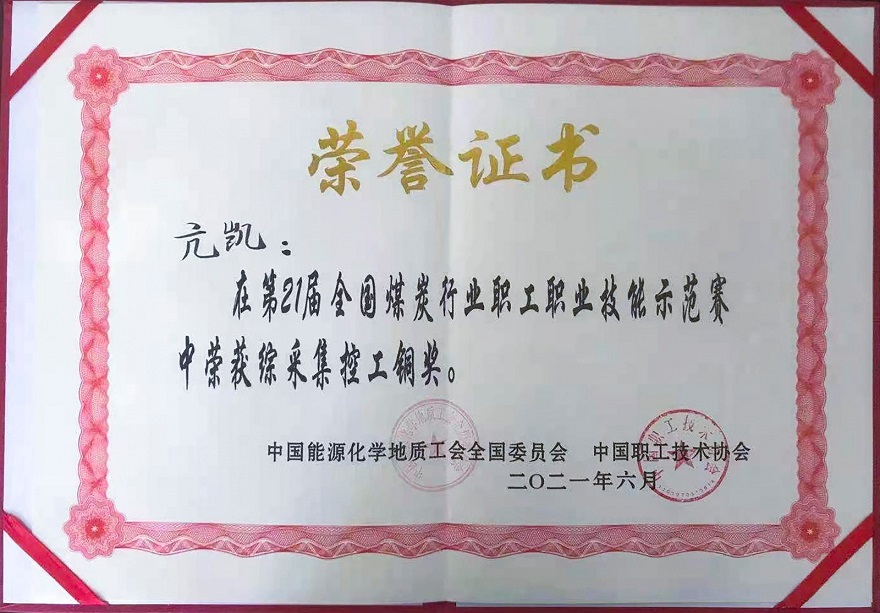 荣誉证书
亢凯：
在第21届全国煤炭行业职工职业技能示范赛
中荣获综采集控工铜奖。
中国能源化学地质工会全国委员会 中国职工技术协会
二〇二一年六月